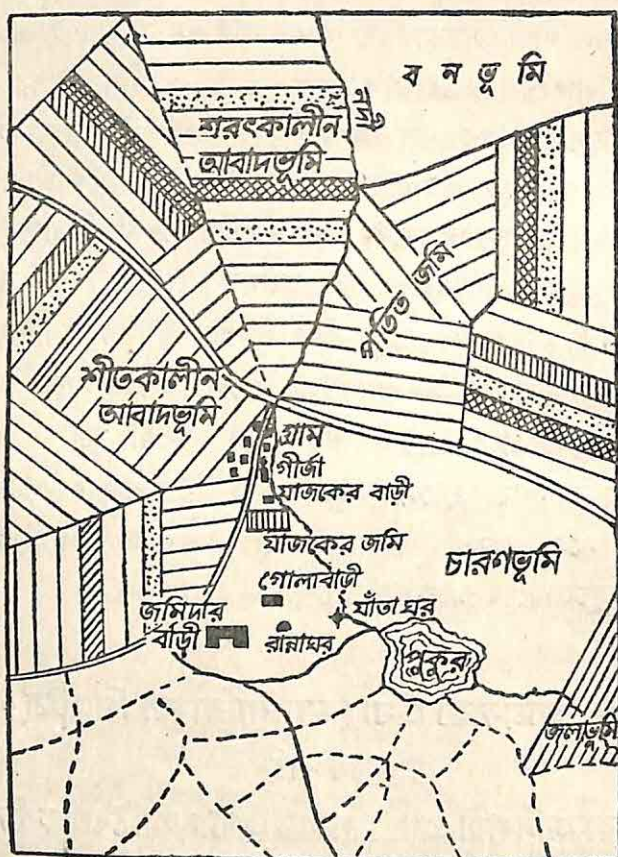 বনভূমি
নদী
শরৎকালীন
আবাদভূমি
পতিত জমি
শীতকালীন
আবাদভূমি
গ্রাম
গীর্জা
যাজকের বাড়ী
যাজকের জমি
গোলাবাড়ী
চারণভূমি
জমিদার
বাড়ী
রান্নাঘর
যাঁতাঘর
পুকুর
জলাভূমি